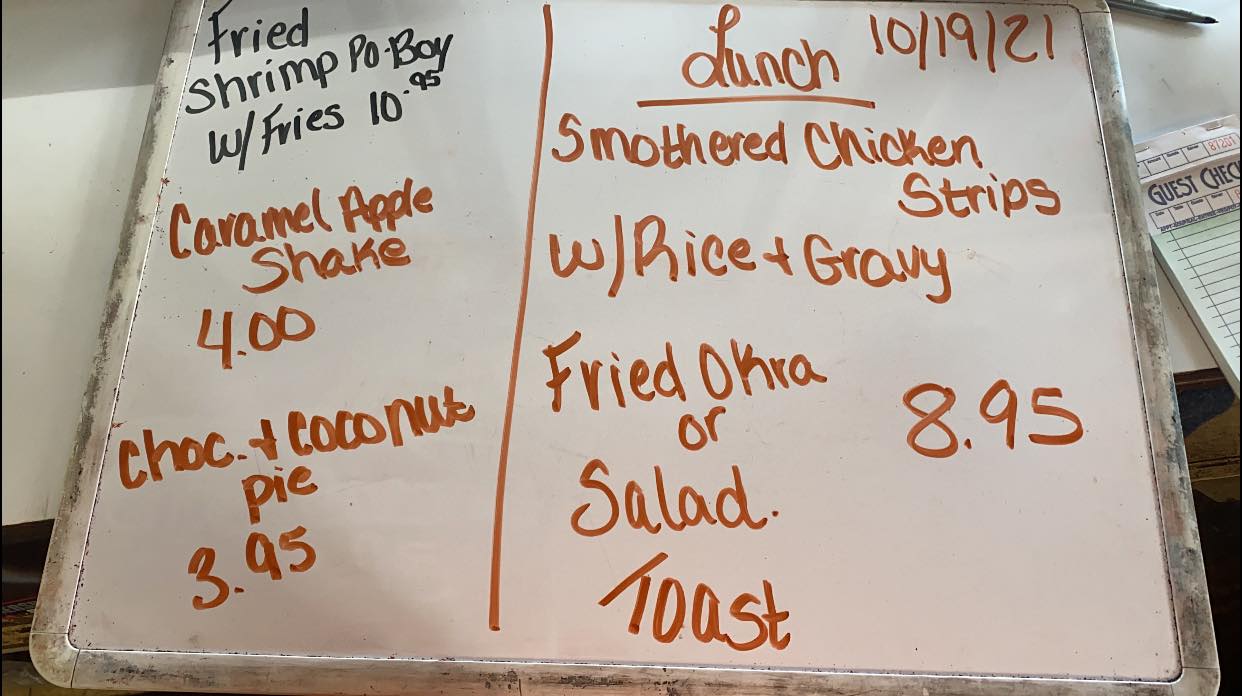 Fried
Shrimp Po-Boy
w/Fries 10.95
Caramel Apple
Shake
4.00
Choc. + Coconut
pie
3.95
Lunch 10/19/21
Smothered Chicken
Strips
w/Rice + Gravy
Fried Okra
or
8.95
Salad.
Toast
GUEST CHECK